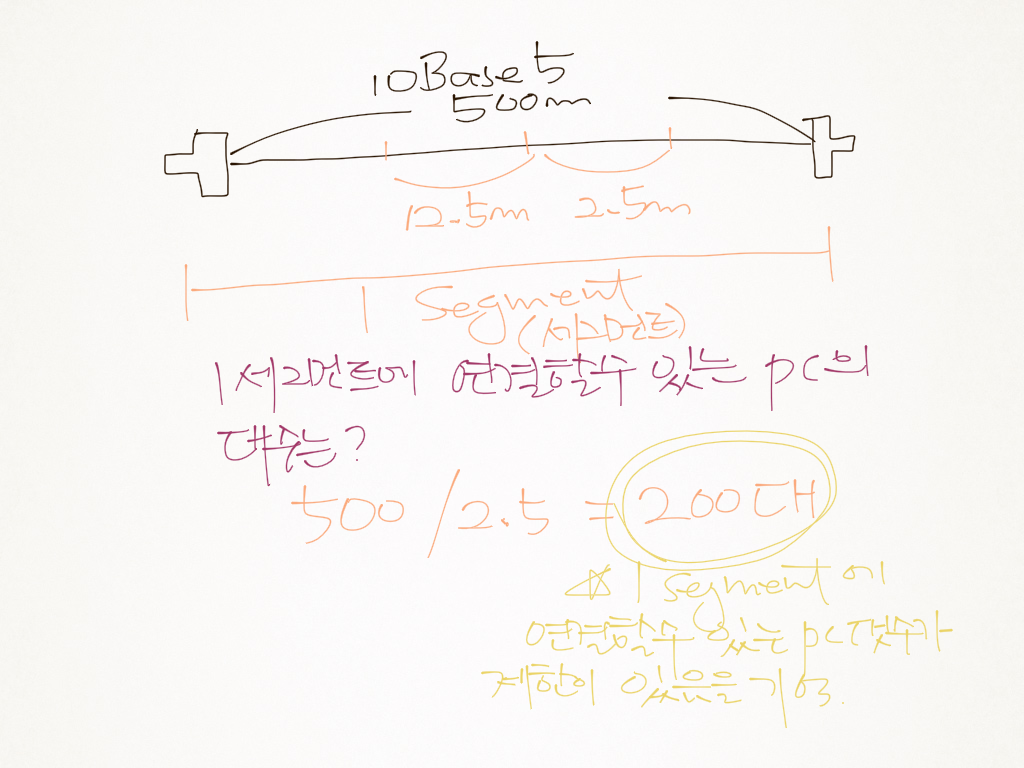 10Base 5
500m
12.5m 2.5m
1 Segment
(세그먼트)
1세그먼트에 연결할수 있는 pc의
대수는?
500 / 2.5 = 200대
☆ 1 segment에
연결할수 있는 pc갯수가
제한이 있음을 기억.